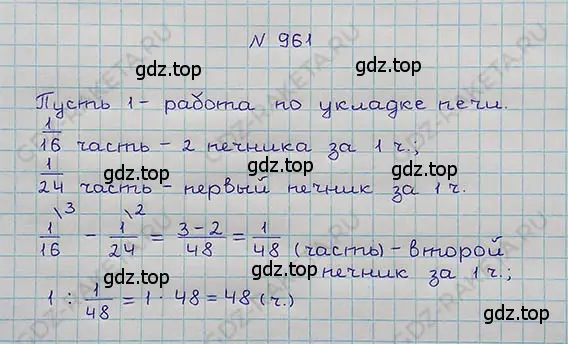 № 961
gdz.top
Пусть 1 - работа по укладке печи.
1/16 часть - 2 печника за 1 ч.;
gdz.top gdz.top
1/24 часть - первый печник за 1 ч.
1/16 \3 - 1/24 \2 = 3-2/48 = 1/48 (часть) - второй
gdz.top gdz.top
печник за 1 ч.;
1 : 1/48 = 1 · 48 = 48 (ч.)
gdz.top gdz.top
GDZ-RAKETA.RU